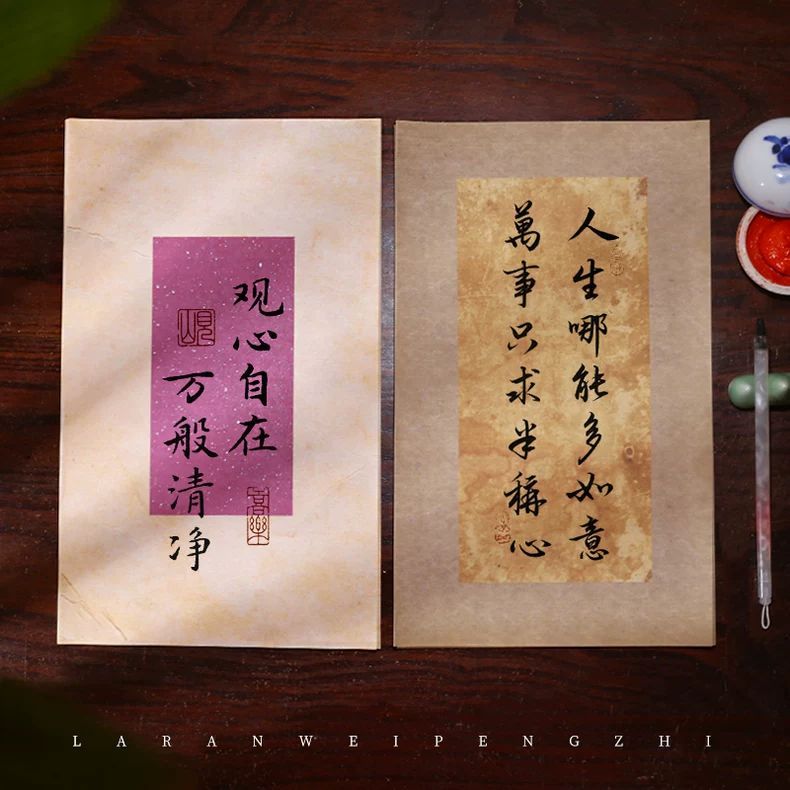 观心自在
万般清净
人生哪能多如意
萬事只求半稱心
LARANWEIPENGZHI